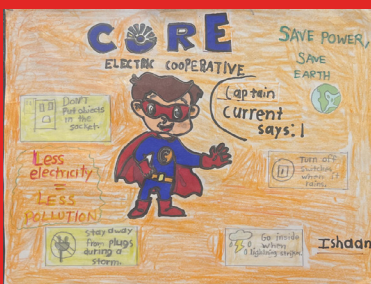 CORE
ELECTRIC COOPERATIVE
SAVE POWER,
SAVE
EARTH
Captain
Current
says:!
Don't
Put objects
in the
socket.
Less
electricity
=
LESS
POLLUTION
Turn off
switches
when it
rains.
Stay away
from plugs
during a
storm.
Go inside
when
lightning
Ishaan